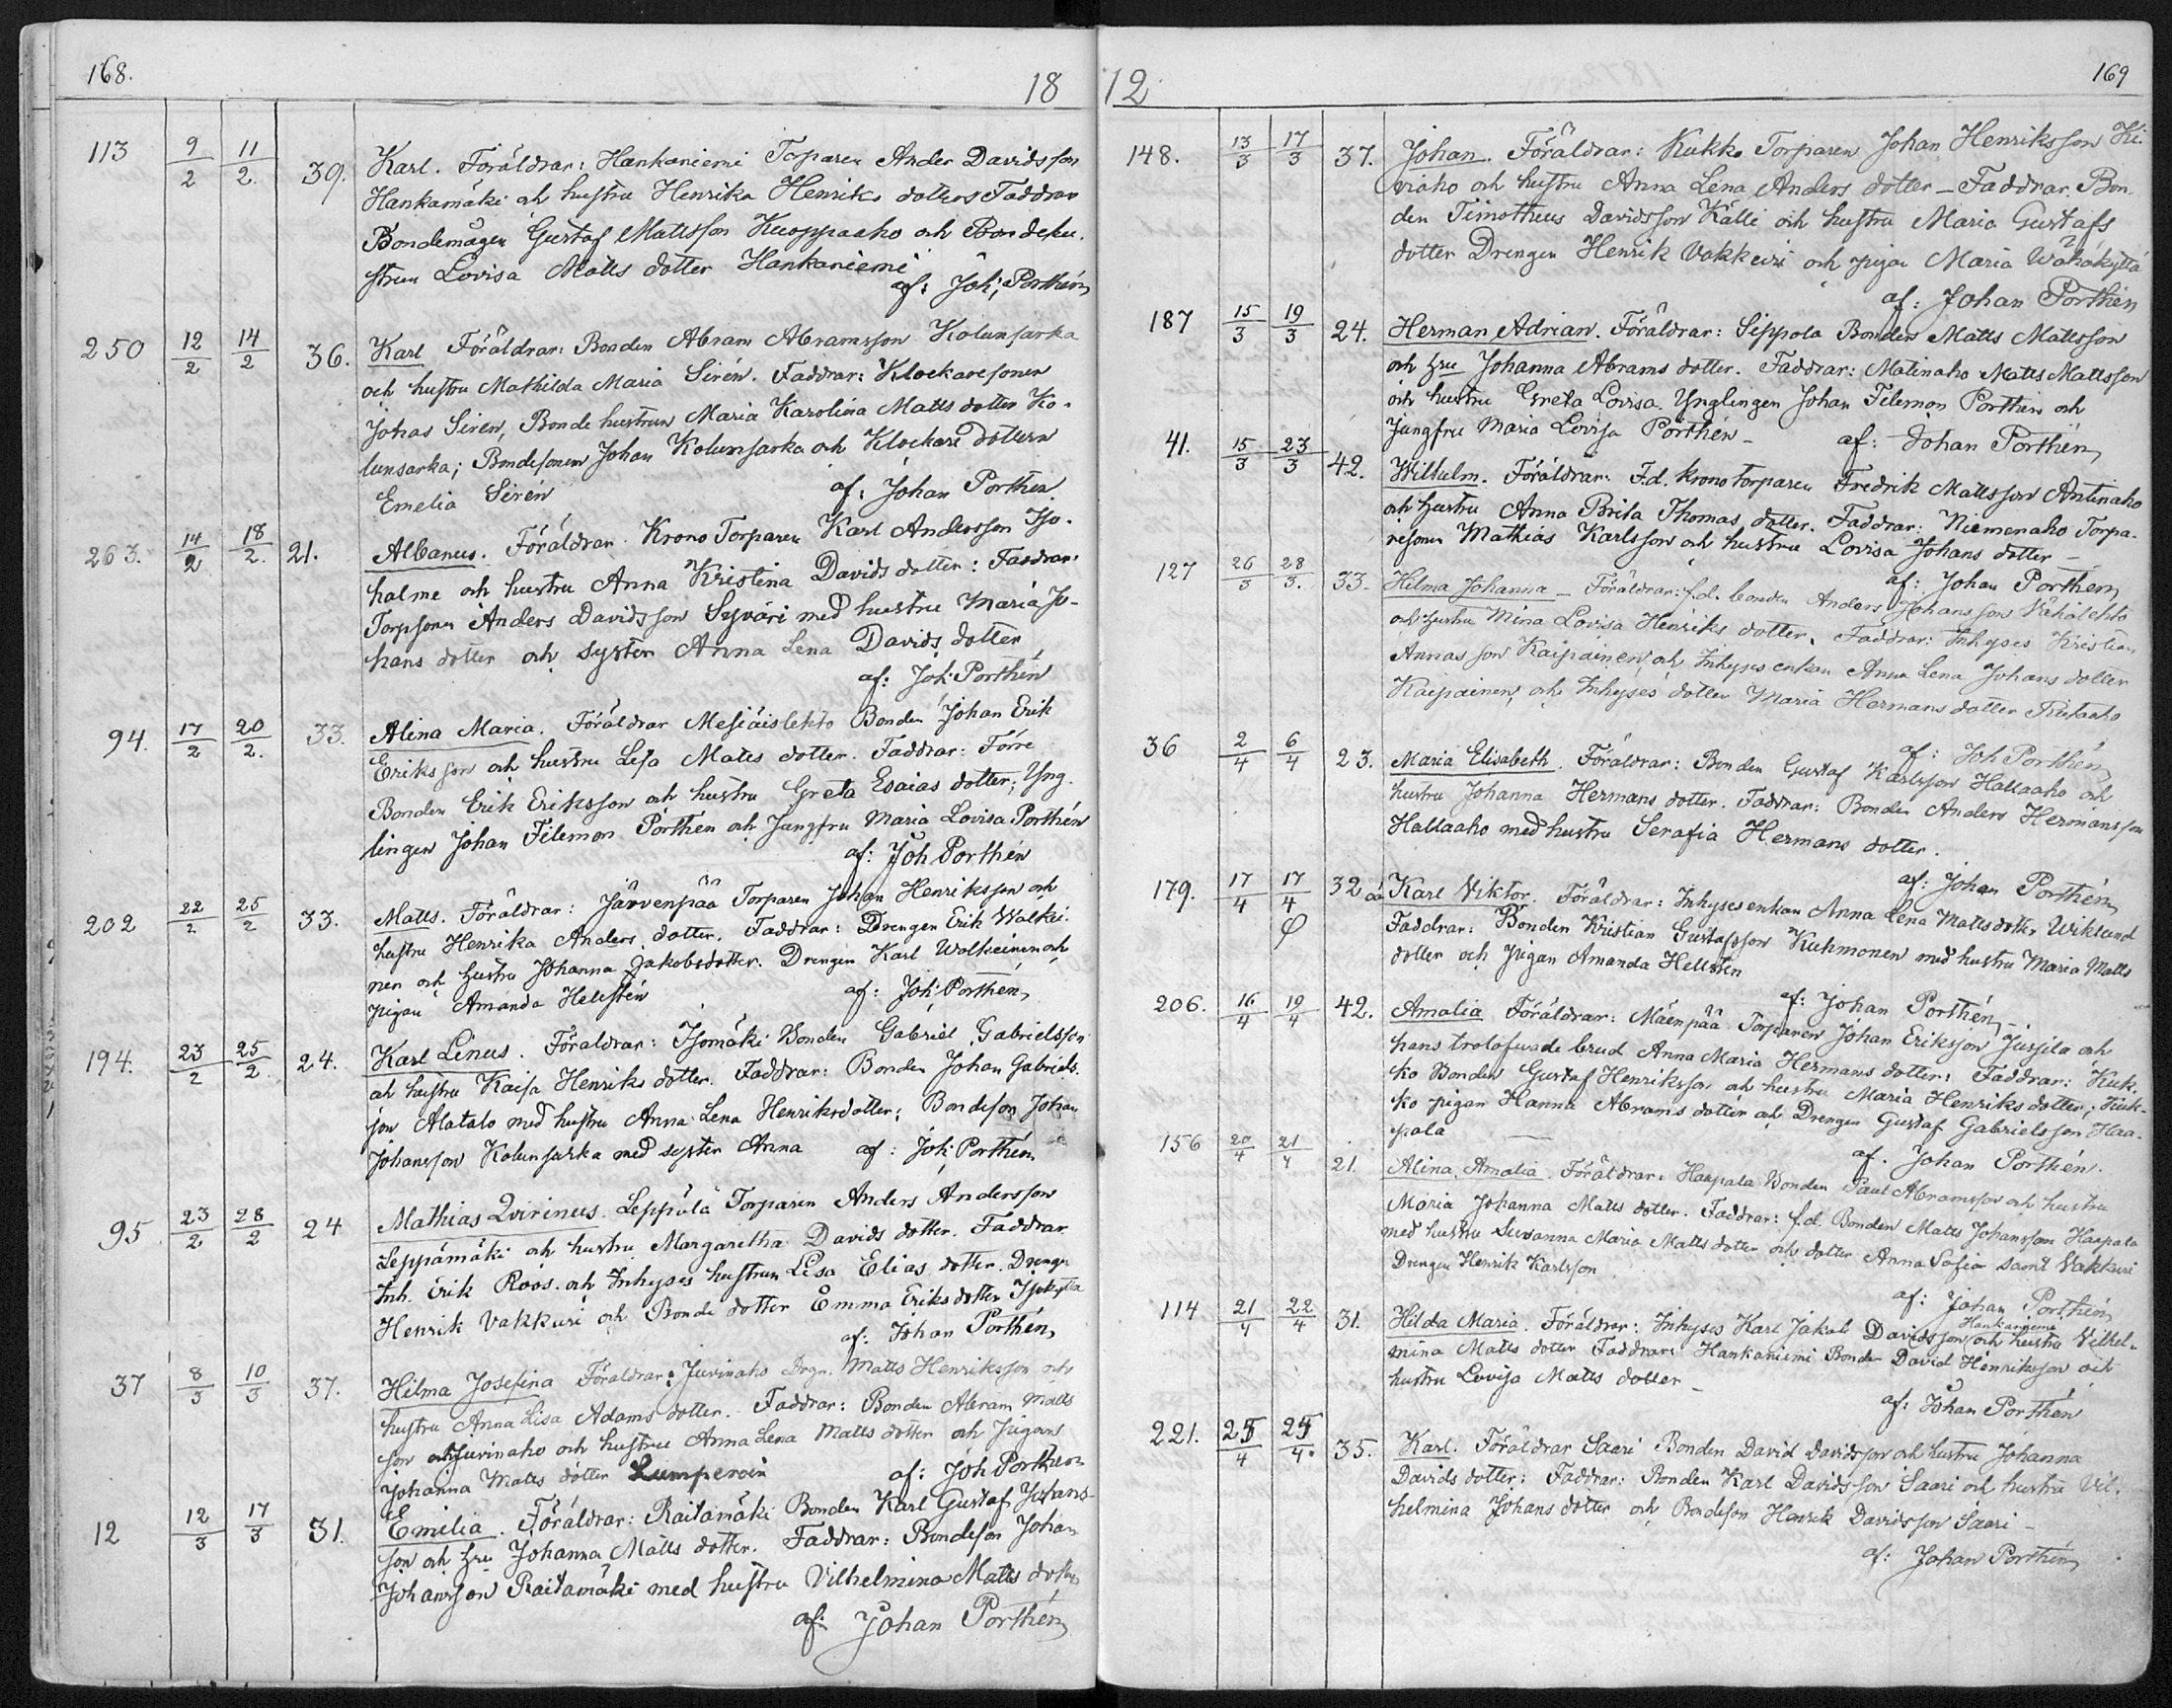 168.
18
113 9/2 11/2. 39. Karl. Föräldrar: Hankaniemi Torparen Ander Davidsson
Hankamäki och hustru Henrika Henriks dotters Faddrar
Bondemågen Gustaf Mattsson Kuoppaaho och Bondehu-
strun Lovisa Matts dotter Hankaniemi
af: Joh; Porthén
250 12/2 14/2 36. Karl Föräldrar: Bonden Abram Abramsson Kolunsarka
och hustru Mathilda Maria Sirén. Faddrar: Klockaresonen
Johas Sirén, Bonde hustrun Maria Karolina Matts dotter Ko-
lunsarka; Bondesonen Johan Kolunsarka och Klockare dottern
Emelia Sirén af: Johan Porthén.
263. 14/2 18/2. 21. Albanus. Föräldrar Krono Torparen Karl Andersson Iso-
halme och hustru Anna Kristina Davids dotter: Faddrar:
Torpsonen Anders Davidsson Syväri med hustru Maria Jo-
hans dotter och syster Anna Lena Davids dotter
af: Joh: Porthén
94. 17/2 20/2. 33. Alina Maria. Föräldrar Mesiäislehto Bonden Johan Erik
Eriksson och hustru Lisa Matts dotter. Faddrar: Förre
Bonden Erik Eriksson och hustru Greta Esaias dotter; Yng-
lingen Johan Filemon Porthén och Jungfru Maria Lovisa Porthén
af: Joh Porthén
202 22/2 25/2 33. Matts. Föräldrar: Järvenpää Torparen Johan Henriksson och
hustru Henrika Anders dotter. Faddrar: Drengen Erik Walkei-
nen och hustru Johanna Jakobsdotter. Drengen Karl Wolkeinen och
pigan Amanda Hellstén af: Joh: Porthén,
194. 23/2 25/2. 24. Karl Linus. Föräldrar: Isomäki Bonden Gabriel Gabrielsson
och hustru Kaisa Henriks dotter. Faddrar: Bonden Johan Gabriels-
son Alatalo med hustru Anna Lena Henriksdotter; Bondeson Johan
Johansson Kolunsarka med syster Anna af: Joh; Porthén,
95 23/2 28/2 24 Mathias Qvirinus. Leppälä Torparen Anders Andersson
Leppämäki och hustru Margaretha Davids dotter. Faddrar
Inh. Erik Roos. och Inhyses hustrun Lisa Elias dotter. Drengen
Henrik Vakkuri och Bonde dotter Emma Eriks dotter Isokyttä
af: Johan Porthén,
37 8/3 10/3 37. Hilma Josefina Föräldrar: Juvinaho Drgn. Matts Henriksson och
hustru Anna Lisa Adams dotter. Faddrar: Bonden Abram Matts
son och Juvinaho och hustru Anna Lena Matts dotter och Pigan
Johanna Matts dotter Lumperoin af: Joh Porthén
12 12/3 17/3 31. Emilia. Föräldrar: Raitamäki Bonden Karl Gustaf Johans-
son och hru Johanna Matts dotter. Faddrar: Bondeson Johan
Johansson Raitamäki med hustru Vilhelmina Matts dotter
af: Johan Porthén,
12
169
148. 13/3 17/3 37. Johan. Föräldrar: Kukko Torparen Johan Henriksson Ki-
viaho och hustru Anna Lena Anders dotter – Faddrar. Bon
den Timotheus Davidsson Källi och hustru Maria Gustafs
dotter Drengen Henrik Vakkuri och pigan Maria Wähäkyttä
af: Johan Porthén
187 15/3 19/3 24. Herman Adrian. Föräldrar: Sippola Bonden Matts Mattsson
och hru Johanna Abrams dotter. Faddrar: Matinaho Matts Mattsson
och hustru Greta Lovisa. Ynglingen Johan Filemon Porthén och
Jungfru Maria Lovisa Porthén – af: Johan Porthén,
41. 15/3 23/3 42. Wilhelm. Föräldrar: F.d. krono torparen Fredrik Mattsson Antinaho
och hustru Anna Brita Thomas dotter. Faddrar: Niemenaho Torpa-
resonen Mathias Karlsson och hustru Lovisa Johans dotter –
af: Johan Porthén
127 26/3 28/3. 33. Hilma Johanna – Föräldrar: f.d. bonden Anders Johansson Vähälehto
och hustru Mina Lovisa Henriks dotter. Faddrar: Inhyses Kristian
Annas son Kaipainen och Inhyses enkan Anna Lena Johans dotter
Kaipainen, och Inhyses dotter Maria Hermans dotter
af: Joh Porthén
36 2/4 6/4 23. Maria Elisabeth. Föräldrar: Bonden Gustaf Karlsson Hallaaho och
hustru Johanna Hermans dotter. Faddrar: Bonden Anders Hermansson
Hallaaho med hustru Serafia Hermans dotter.
af: Johan Porthén
179. 17/4 17/4 32 Karl Viktor. Föräldrar: Inhysesenkan Anna Lena Mattsdotter Wiklund
Faddrar: Bonden Kristian Gustafsson Kuhmonen med hustru Maria Matts
dotter och pigan Amanda Hellsten
af: Johan Porthén,
206. 16/4 19/4 42. Amalia Föräldrar: Mäenpää Torparen Johan Eriksson Jussila och
hans trolofvade brud Anna Maria Hermans dotter: Faddrar: Kuk-
ko Bonden Gustaf Henriksson och hustru Maria Henriks dotter; Kuk-
ko pigan Hanna Abrams dotter och Drengen Gustaf Gabrielsson Haa-
pala
af. Johan Porthén.
156 20/4 21/4 21. Alina Amalia. Föräldrar: Haapala Bonden Paul Abramsson och hustru
Maria Johanna Matts dotter. Faddrar: f.d. Bonden Matts Johansson Haapala
med hustru Susanna Maria Matts dotter och dotter Anna Sofia samt Vakkuri
Drengen Henrik Karlsson
af: Johan Porthén
114 21/4 22/4 31. Hilda Maria. Föräldrar: Inhyses Karl Jakob Davidsson Hankaniemi och hustru Vilhel-
mina Matts dotter Faddrar: Hankaniemi Bonden David Henriksson och
hustru Lovisa Matts dotter –
af: Johan Porthén
221. 25/4 25/4. 35. Karl. Föräldrar Saari Bonden David Davidsson och hustru Johanna
Davids dotter: Faddrar: Bonden Karl Davidsson Saari och hustru Vil-
helmina Johans dotter och Bondeson Henrik Davidsson Saari –
af: Johan Porthén,